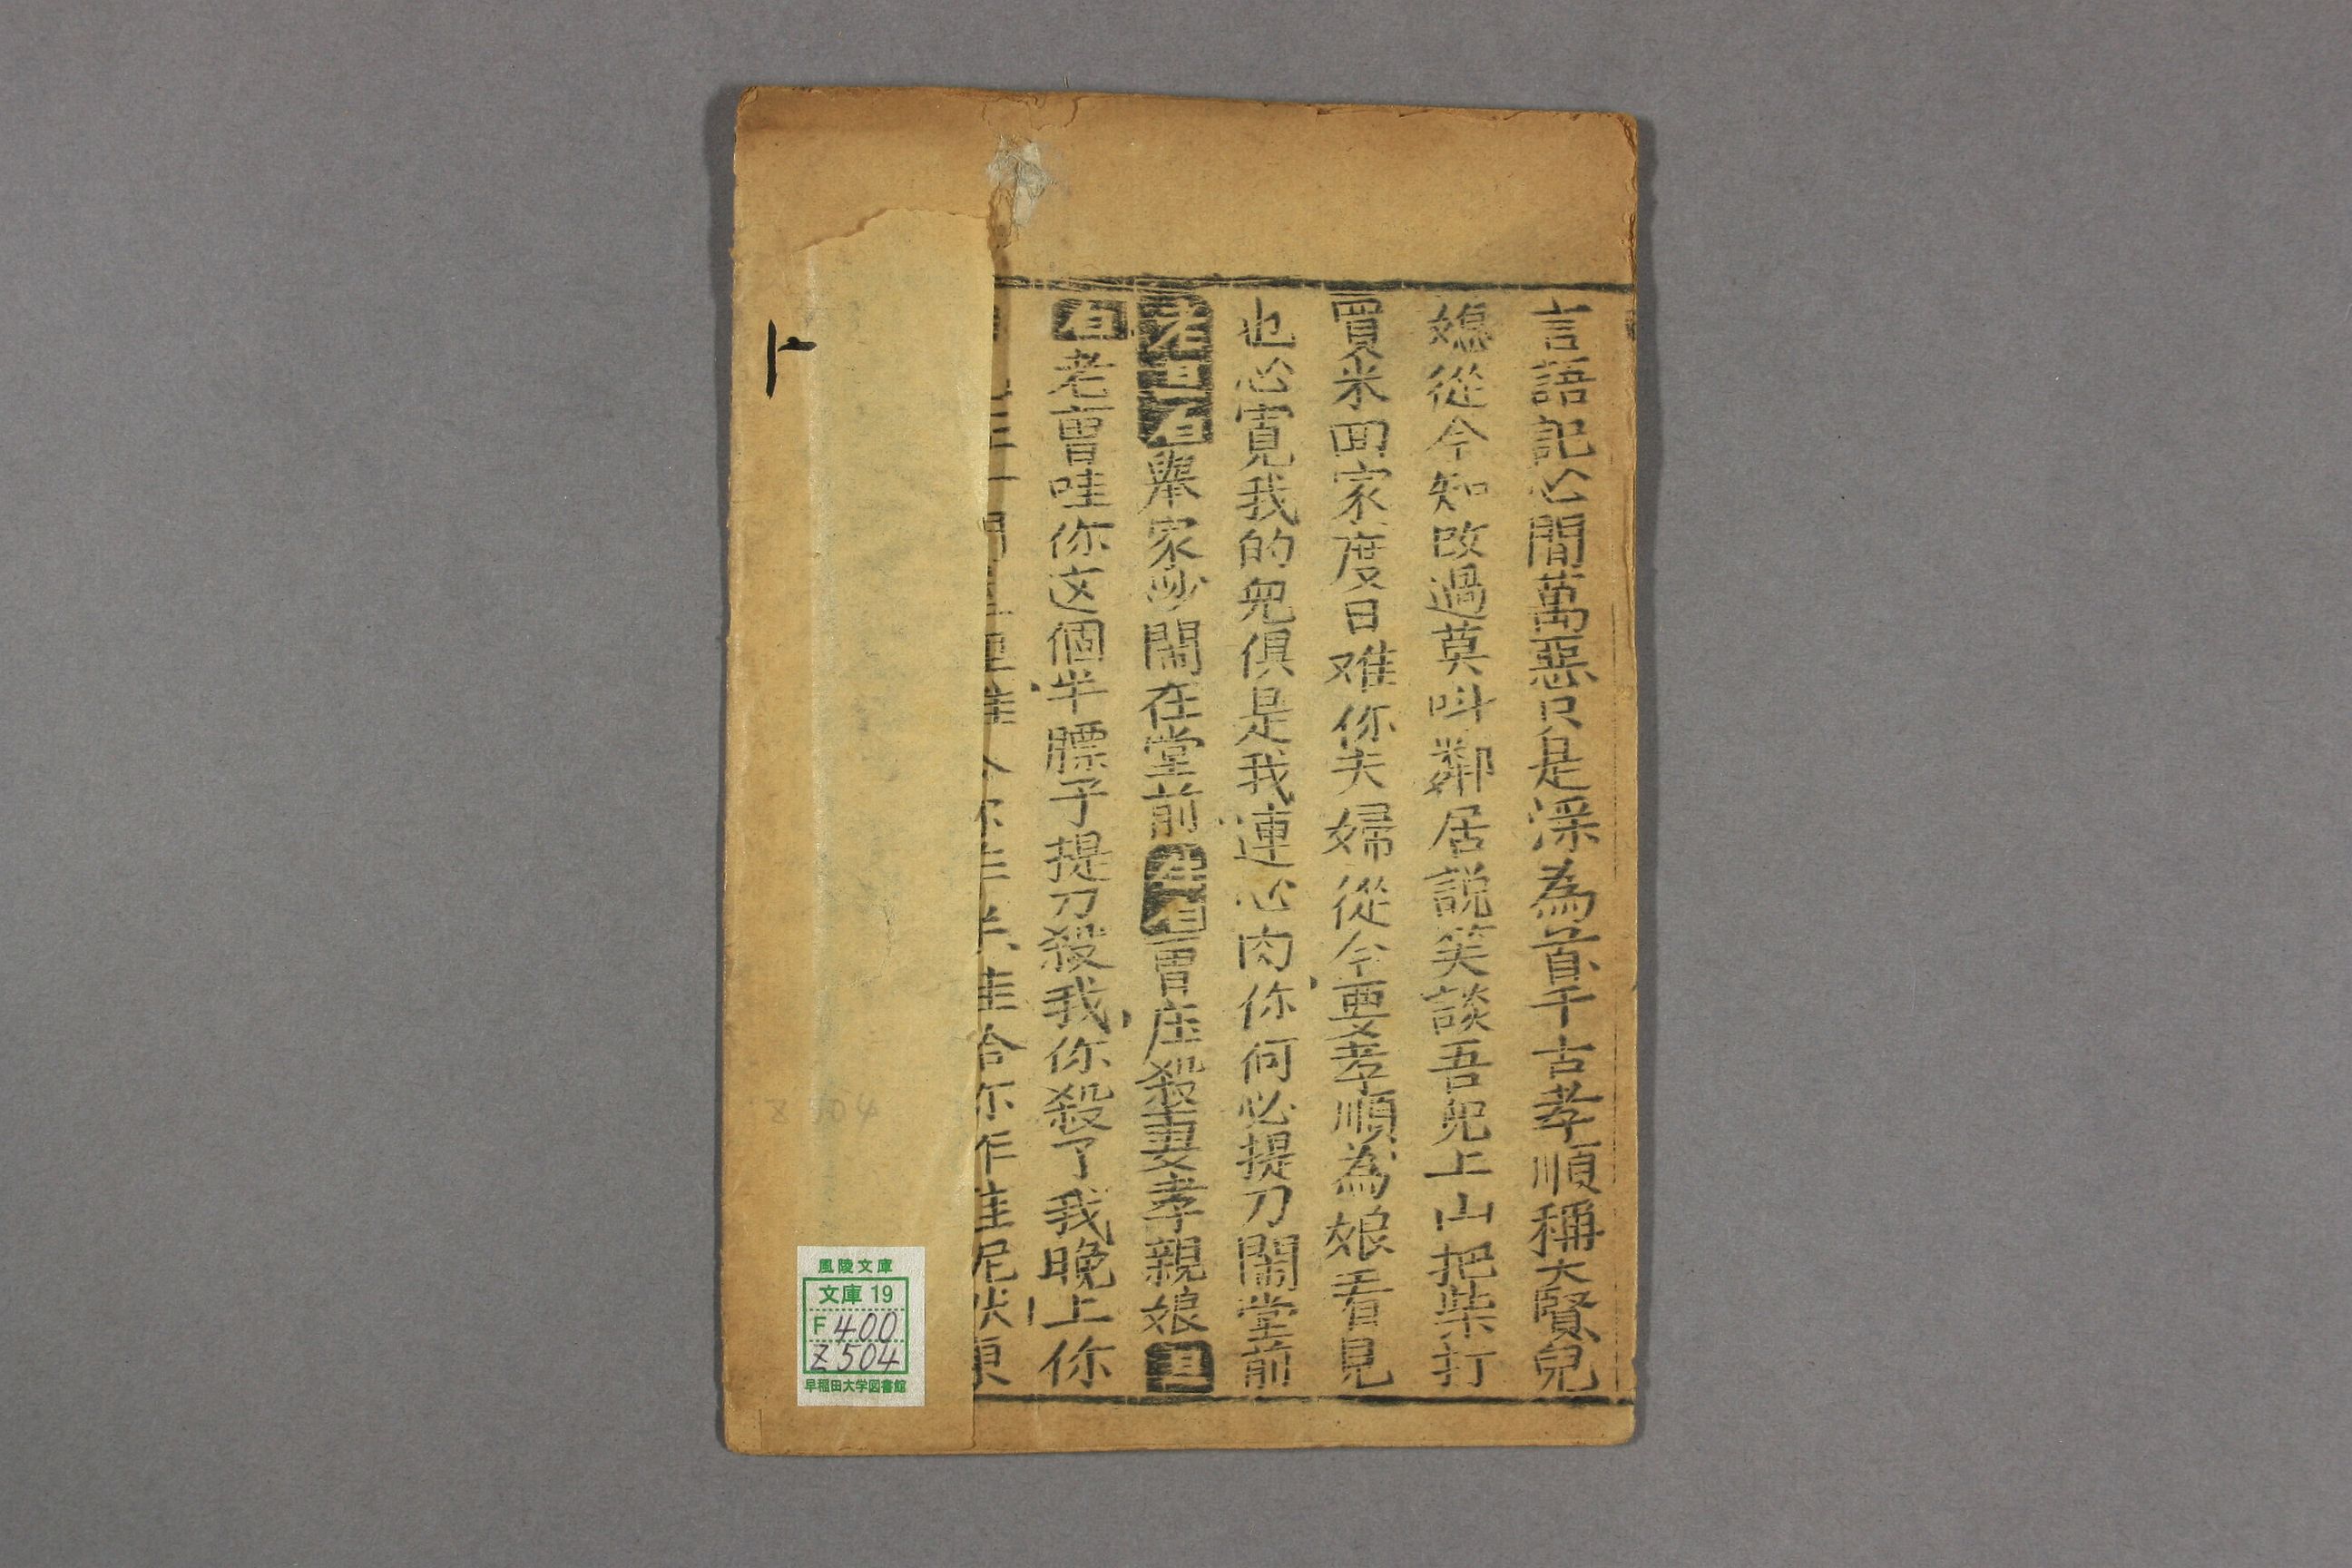 言語記心間萬惡只是淫為首千古孝順稱大賢兒
媳從今知改過莫叫鄰居説笑談吾兒上山把柴打
買米囬家度日难你夫婦從今要孝順為娘看見
也心寛我的兒俱是我連心肉你何必提刀鬧堂前
老旦白舉家吵鬧在堂前生白曹庄殺妻孝親娘旦
白老曹哇你这個半膘子提刀殺我你殺了我晚上你
風陵文庫
文庫 19
F 400
Z 504
早稲田大学図書館
Z 504